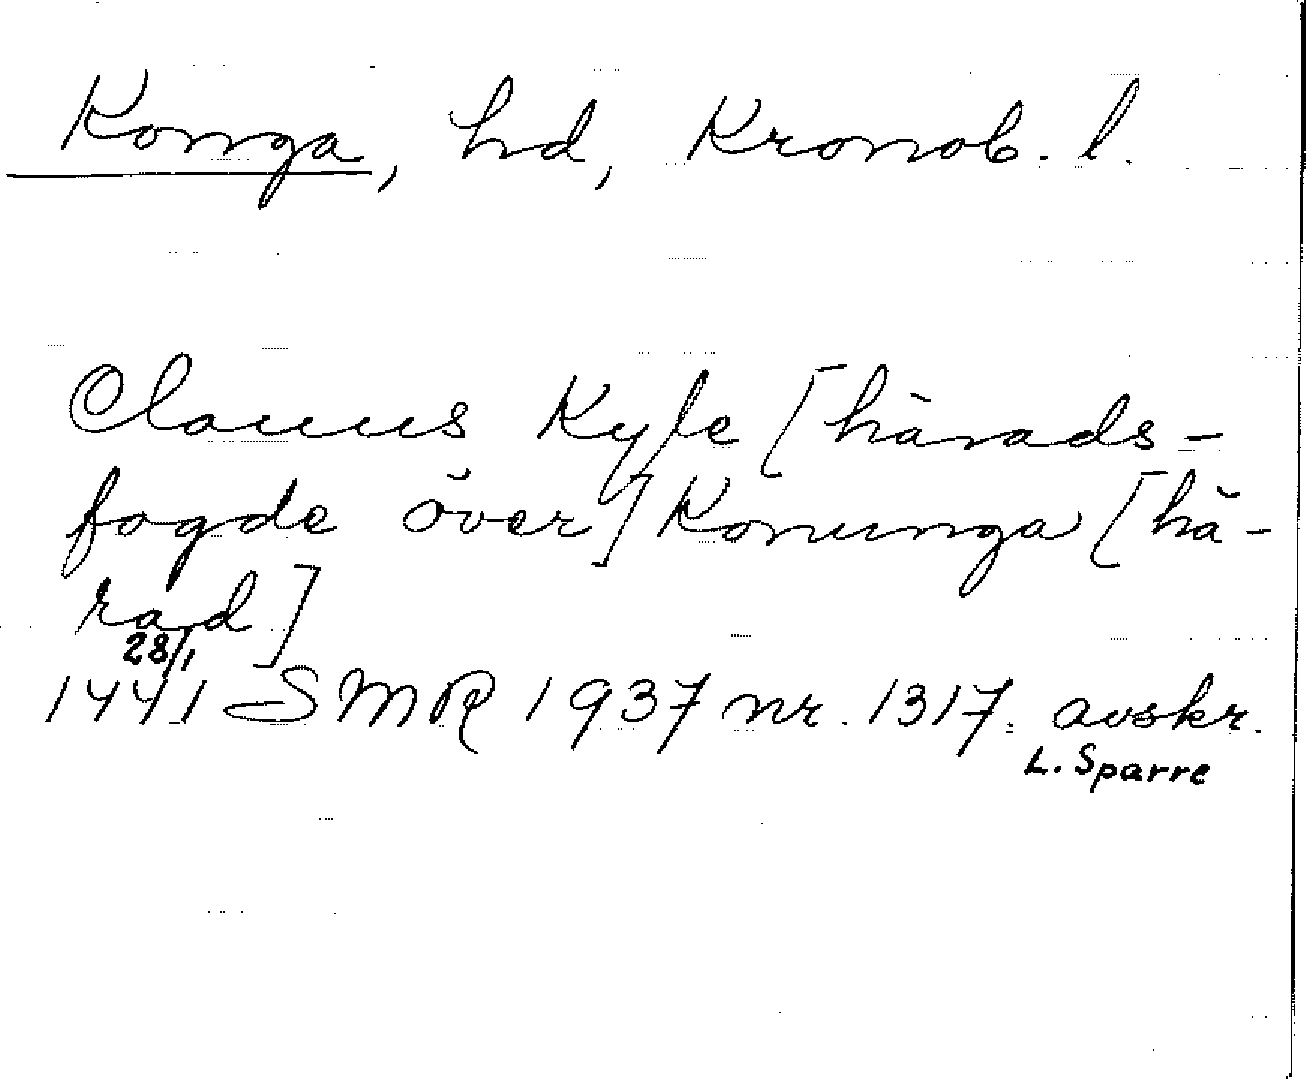 Konga, hd, Kronob. l.
Claus Kyle [härads-
fogde över] Konunga [hä-
rad]
28/1
1441 SMR 1937 nr. 1317. avskr.
L. Sparre